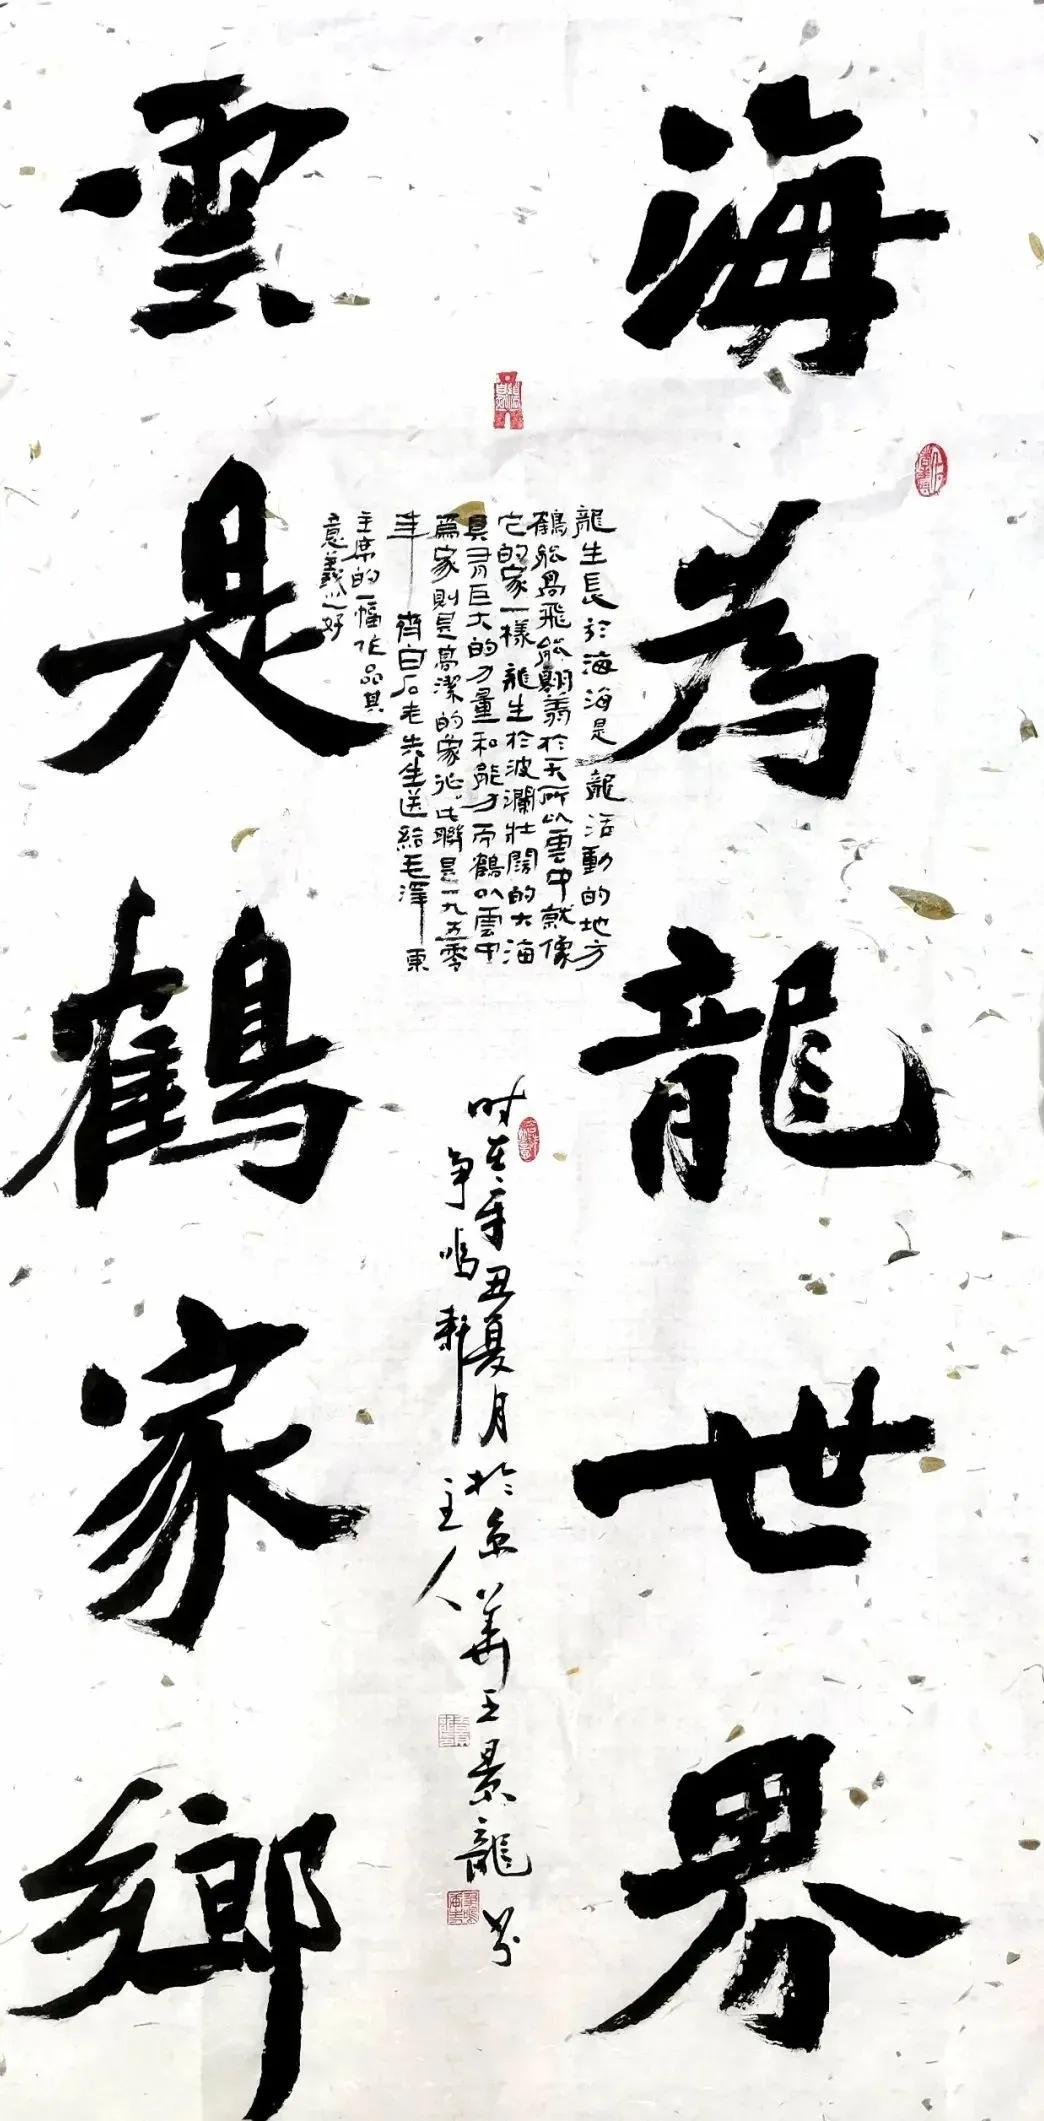 海為龍世界
雲是鶴家鄉
龍生長於海海是龍活動的地方
鶴能高飛能翱翔於天所以雲中就像
它的家一樣龍生於波瀾壯闊的大海
具有巨大的力量和能力而鶴以雲中
為家則是高潔的象征。此聯是一九五零
年齊白石老先生送給毛澤東
主席的一幅作品其
意義心好
时在辛丑夏月於京華王景龍書
争鸣軒主人